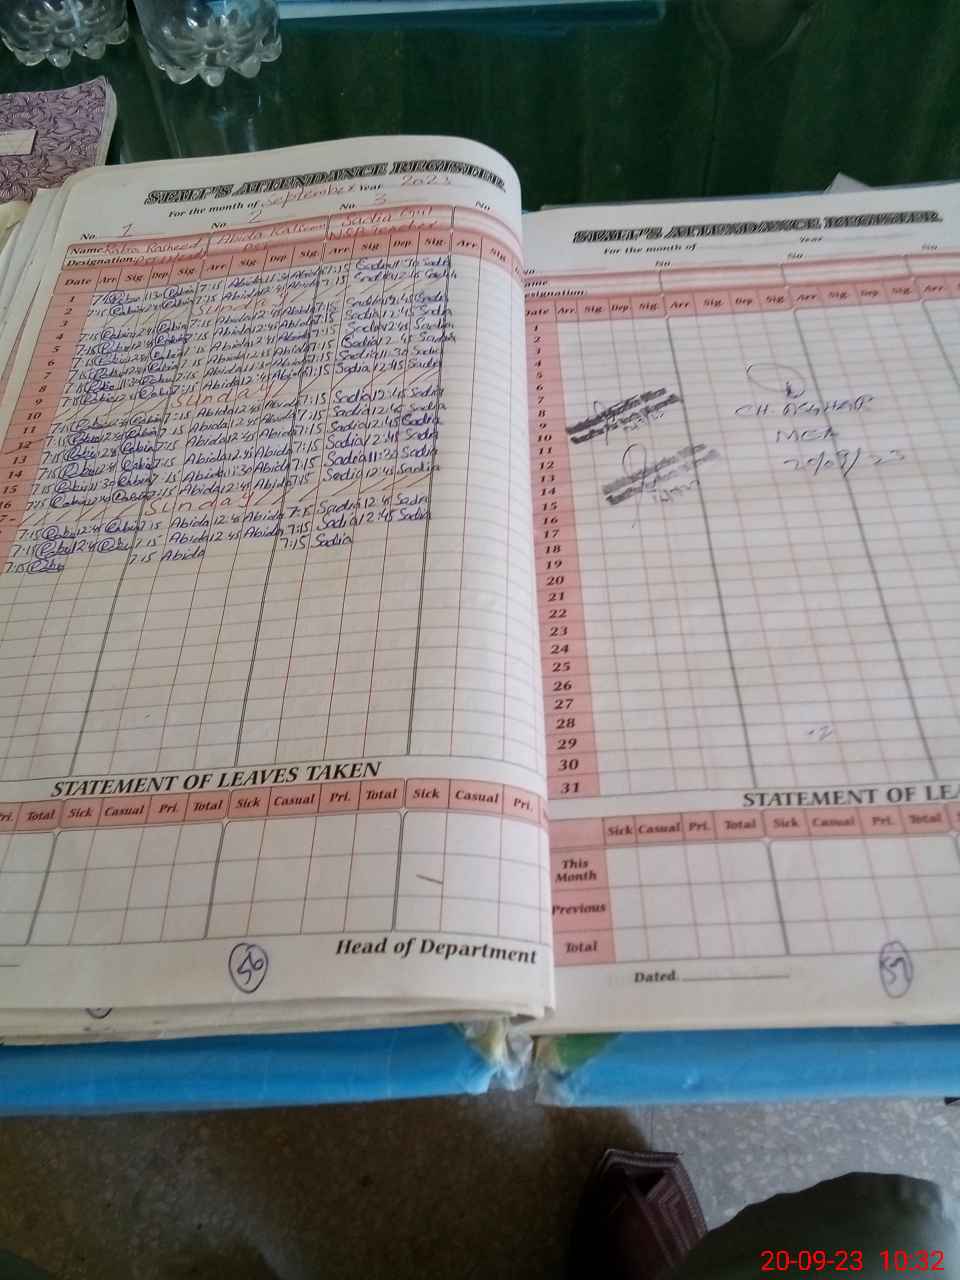 STAFF'S ATTENDANCE REGISTER
For the month of September Year 2023
No. 1 No 2 No. 3 No
Name Rabia Rasheed Abida Kalsoom Sadia Gul
Designation PST Teacher
Date Arr Sig. Dep Sig. Arr Sig. Dep Sig. Arr Sig. Dep Sig. Arr Sig.
1 7:15 Rabia 11:30 Rabia 7:15 Abida 11:30 Abida 7:15 Sadia 11:30 Sadia
2 7:15 Rabia 12:45 Rabia 7:15 Abida 12:45 Abida 7:15 Sadia 12:45 Sadia
3 Sunday
4 7:15 Rabia 12:45 Rabia 7:15 Abida 12:45 Abida 7:15 Sadia 12:45 Sadia
5 7:15 Rabia 12:45 Rabia 7:15 Abida 12:45 Abida 7:15 Sadia 12:45 Sadia
6 7:15 Rabia 12:45 Rabia 7:15 Abida 12:45 Abida 7:15 Sadia 12:45 Sadia
7 7:15 Rabia 12:45 Rabia 7:15 Abida 12:45 Abida 7:15 Sadia 12:45 Sadia
8 7:15 Rabia 11:30 Rabia 7:15 Abida 11:30 Abida 7:15 Sadia 11:30 Sadia
9 7:15 Rabia 12:45 Rabia 7:15 Abida 12:45 Abida 7:15 Sadia 12:45 Sadia
10 Sunday
11 7:15 Rabia 12:45 Rabia 7:15 Abida 12:45 Abida 7:15 Sadia 12:45 Sadia
12 7:15 Rabia 12:45 Rabia 7:15 Abida 12:45 Abida 7:15 Sadia 12:45 Sadia
13 7:15 Rabia 12:45 Rabia 7:15 Abida 12:45 Abida 7:15 Sadia 12:45 Sadia
14 7:15 Rabia 12:45 Rabia 7:15 Abida 12:45 Abida 7:15 Sadia 12:45 Sadia
15 7:15 Rabia 11:30 Rabia 7:15 Abida 11:30 Abida 7:15 Sadia 11:30 Sadia
16 7:15 Rabia 12:45 Rabia 7:15 Abida 12:45 Abida 7:15 Sadia 12:45 Sadia
Sunday
7:15 Rabia 12:45 Rabia 7:15 Abida 12:45 Abida 7:15 Sadia 12:45 Sadia
7:15 Rabia 12:45 Rabia 7:15 Abida 12:45 Abida 7:15 Sadia 12:45 Sadia
7:15 Rabia 7:15 Abida 7:15 Sadia
STATEMENT OF LEAVES TAKEN
Pri. Total Sick Casual Pri. Total Sick Casual Pri. Total Sick Casual Pri.
Head of Department
56
STAFF'S ATTENDANCE REGISTER
For the month of Year
No No No
Name
Designation:
Date Arr Sig. Dep Sig. Arr Sig. Dep Sig. Arr Sig. Dep Sig. Arr
1
2
3
4
5
6
7
8 CH. ASGHAR
9
10 MEA
11
12 20/09/23
13
14
15
16
17
18
19
20
21
22
23
24
25
26
27
28
29
30
31
STATEMENT OF LEA
Sick Casual Pri. Total Sick Casual Pri. Total
This Month
Previous
Total
Dated
57
20-09-23 10:32